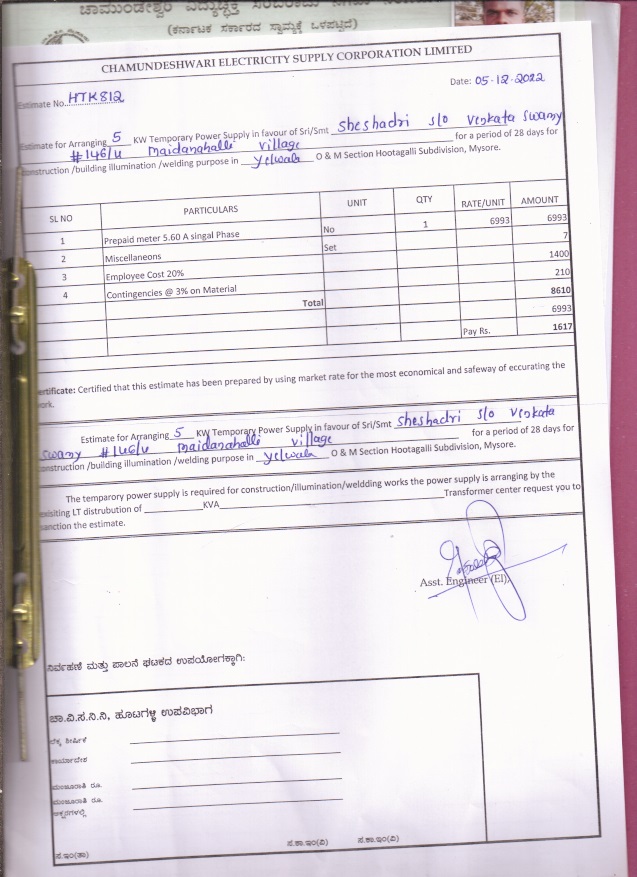 (ಕರ್ನಾಟಕ ಸರ್ಕಾರದ ಸ್ವಾಮ್ಯಕ್ಕೆ ಒಳಪಟ್ಟಿದೆ)
CHAMUNDESHWARI ELECTRICITY SUPPLY CORPORATION LIMITED
Estimate No. HTK812
Date: 05-12-2022
Estimate for Arranging 5 KW Temporary Power Supply in favour of Sri/Smt Sheshadri s/o Venkata Swamy
#146/4 maidanahalli village for a period of 28 days for
onstruction /building illumination /welding purpose in yelwala O & M Section Hootagalli Subdivision, Mysore.
SL NO PARTICULARS UNIT QTY RATE/UNIT AMOUNT
1 Prepaid meter 5.60 A singal Phase No 1 6993 6993
2 Miscellaneons Set 7
3 Employee Cost 20% 1400
4 Contingencies @ 3% on Material 210
Total 8610
6993
Pay Rs. 1617
ertificate: Certified that this estimate has been prepared by using market rate for the most economical and safeway of eccurating the
ork.
Estimate for Arranging 5 KW Temporary Power Supply in favour of Sri/Smt Sheshadri s/o Venkata
Swamy #146/4 maidanahalli village for a period of 28 days for
onstruction /building illumination /welding purpose in yelwala O & M Section Hootagalli Subdivision, Mysore.
The temparory power supply is required for construction/illumination/weldding works the power supply is arranging by the
exisiting LT distrubution of KVA Transformer center request you to
anction the estimate.
Asst. Engineer (El),
ನಿರ್ವಹಣೆ ಮತ್ತು ಪಾಲನೆ ಘಟಕದ ಉಪಯೋಗಕ್ಕಾಗಿ:
ಚಾ.ವಿ.ಸ.ನಿ.ನಿ, ಹೂಟಗಳ್ಳಿ ಉಪವಿಭಾಗ
ಲೆಕ್ಕ ಶೀರ್ಷಿಕೆ
ಕಾರ್ಯಾದೇಶ
ಮಂಜೂರಾತಿ ರೂ.
ಮಂಜೂರಾತಿ ರೂ.
ಅಕ್ಷರಗಳಲ್ಲಿ
ಸ.ಇಂ(ತಾ) ಸ.ಕಾ.ಇಂ(ವಿ) ಸ.ಕಾ.ಇಂ(ವಿ)